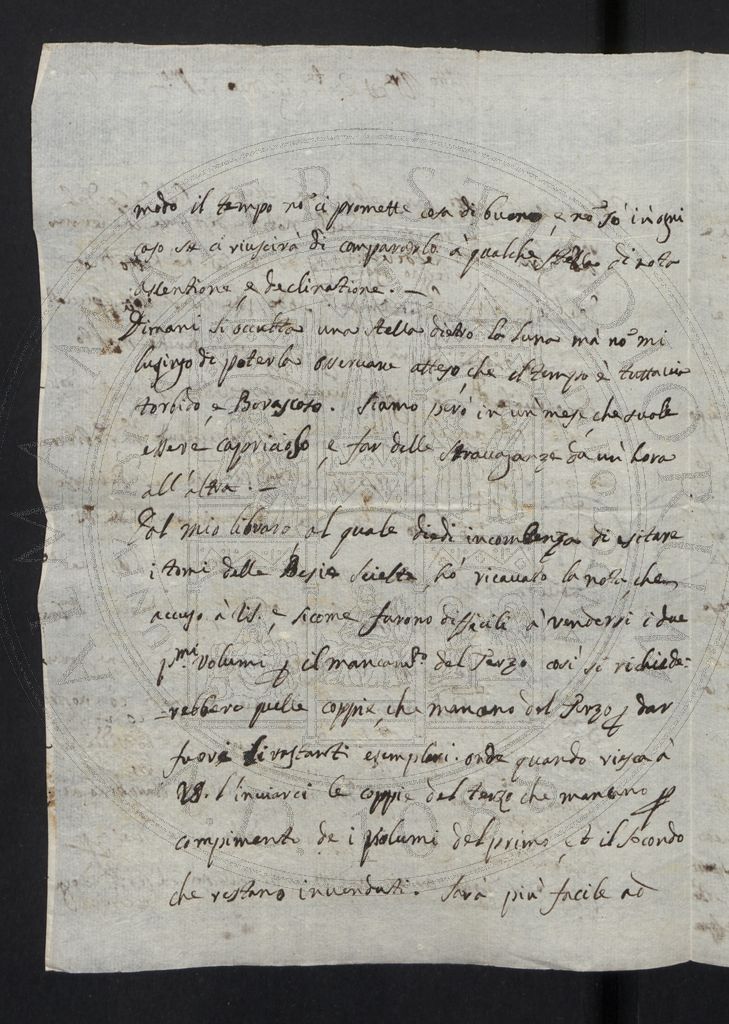 modo il tempo nõ ci promette cosa di buono, e nõ sò in ogni
caso se ci riuscirà di compararlo à qualche stella di nota
assentione, e declinatione. —
Dimani si occulta una stella dietro la Luna mà nõ mi
lusingo di poterla osservare atteso che il tempo è tuttavia
torbido, e Borascoso. Siamo però in un' mese che suole
essere capricioso, e far delle stravaganze da un' hora
all' altra. —
Dal mio libraro, al quale diedi incombenza di esitare
i tomi delle Besie scielte, hò ricavato la nota, che
accuso à VS. e, sicome furono difficili à vendersi i due
p.mi volumi p il mancam.to del Terzo così si richiede:
rebbero quelle coppie, che mancano del Terzo p dar
fuori li restanti esemplari. onde quando riesca à
VS. l'inviarci le coppie del terzo che mancano p
compimenti de i Volumi del primo, et il secondo
che restano invenduti. Sarà più facile ad